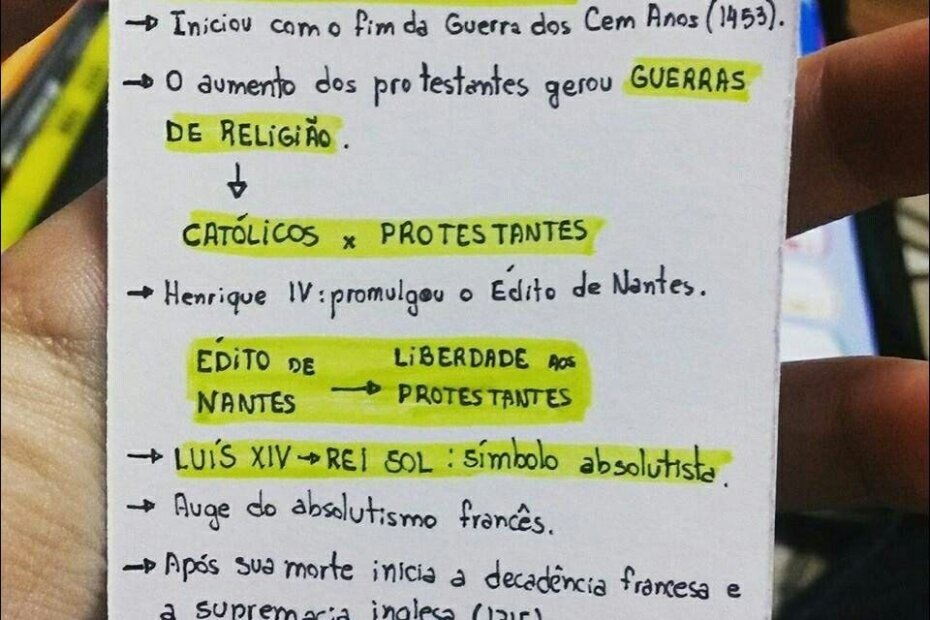 → Iniciou com o fim da Guerra dos Cem Anos (1453).
→ O aumento dos protestantes gerou GUERRAS
DE RELIGIÃO.
↓
CATÓLICOS x PROTESTANTES
→ Henrique IV: promulgou o Édito de Nantes.
ÉDITO DE → LIBERDADE AOS
NANTES PROTESTANTES
→ LUÍS XIV → REI SOL: símbolo absolutista.
→ Auge do absolutismo francês.
→ Após sua morte inicia a decadência francesa e
a supremacia inglesa